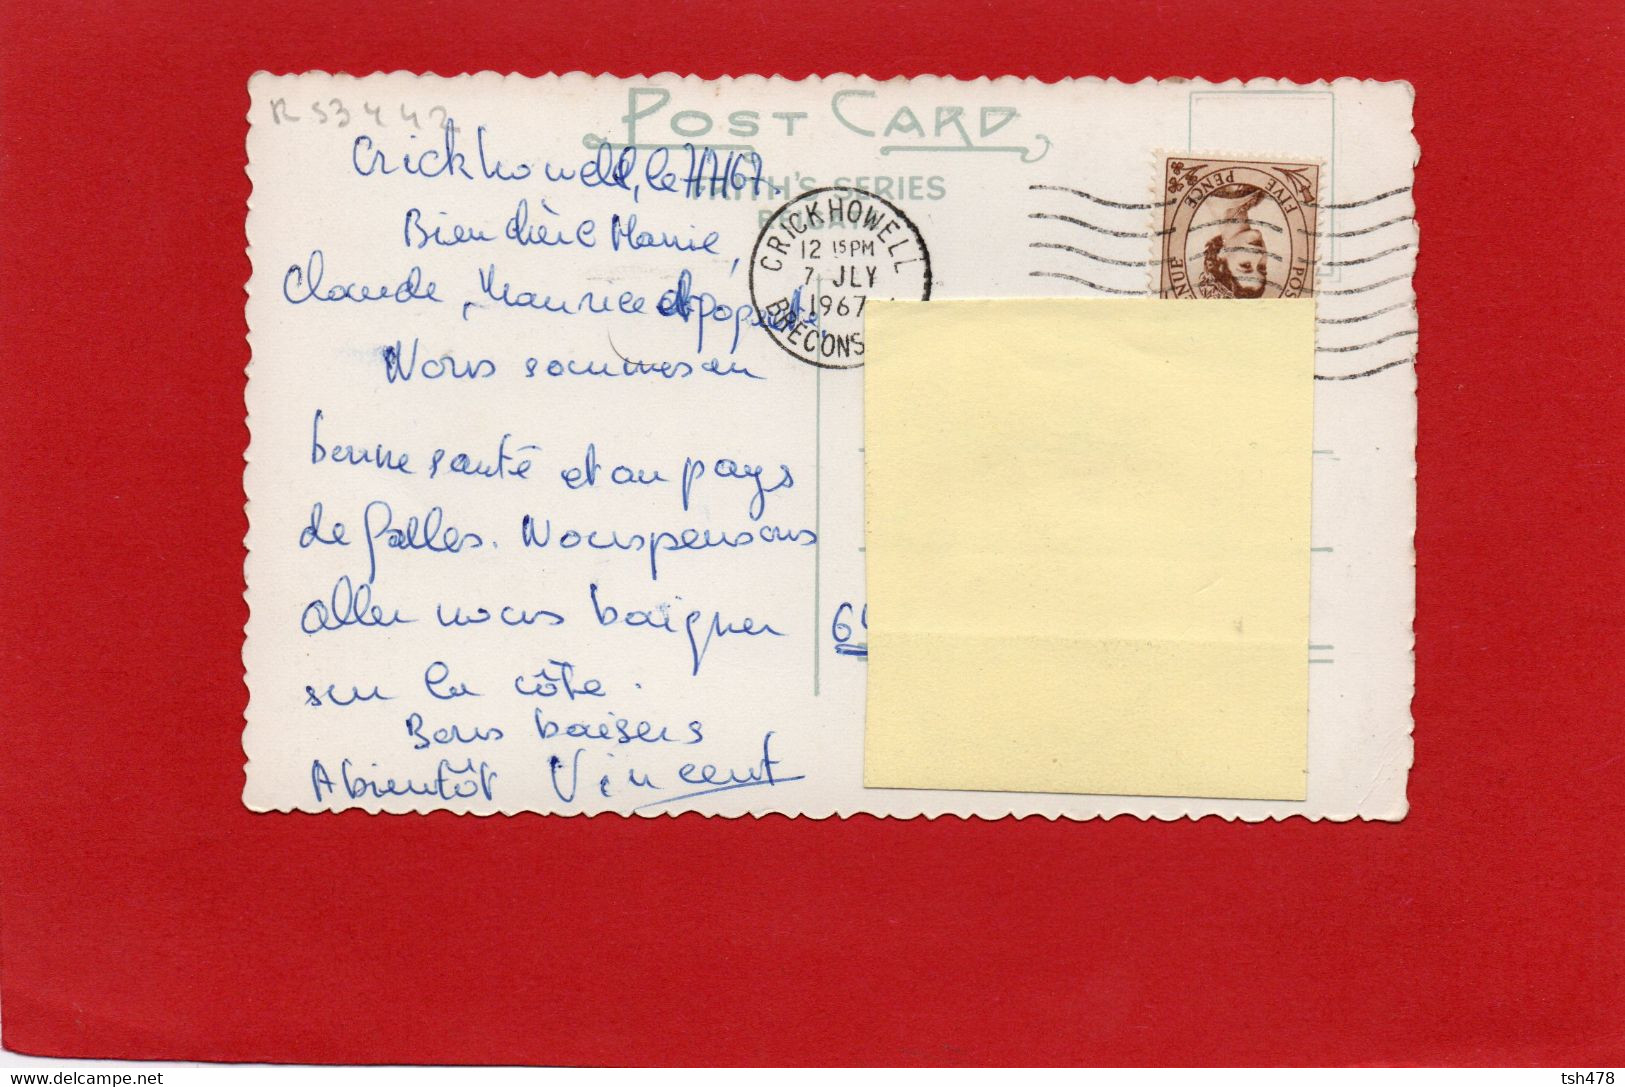 R 53442
POST CARD
FRITH'S SERIES
REIGATE
Crickhowell, le 7/7/67.
Bien chère Mamie,
Claude, Maurice et
Nous sommes en
bonne santé et au pays
de Galles. Nous pensons
aller nous baigner
sur la côte.
Bons baisers
A bientôt Vincent
CRICKHOWELL
12 15PM
7 JLY
1967
BRECONS
FIVE
PENCE
64
tsh478